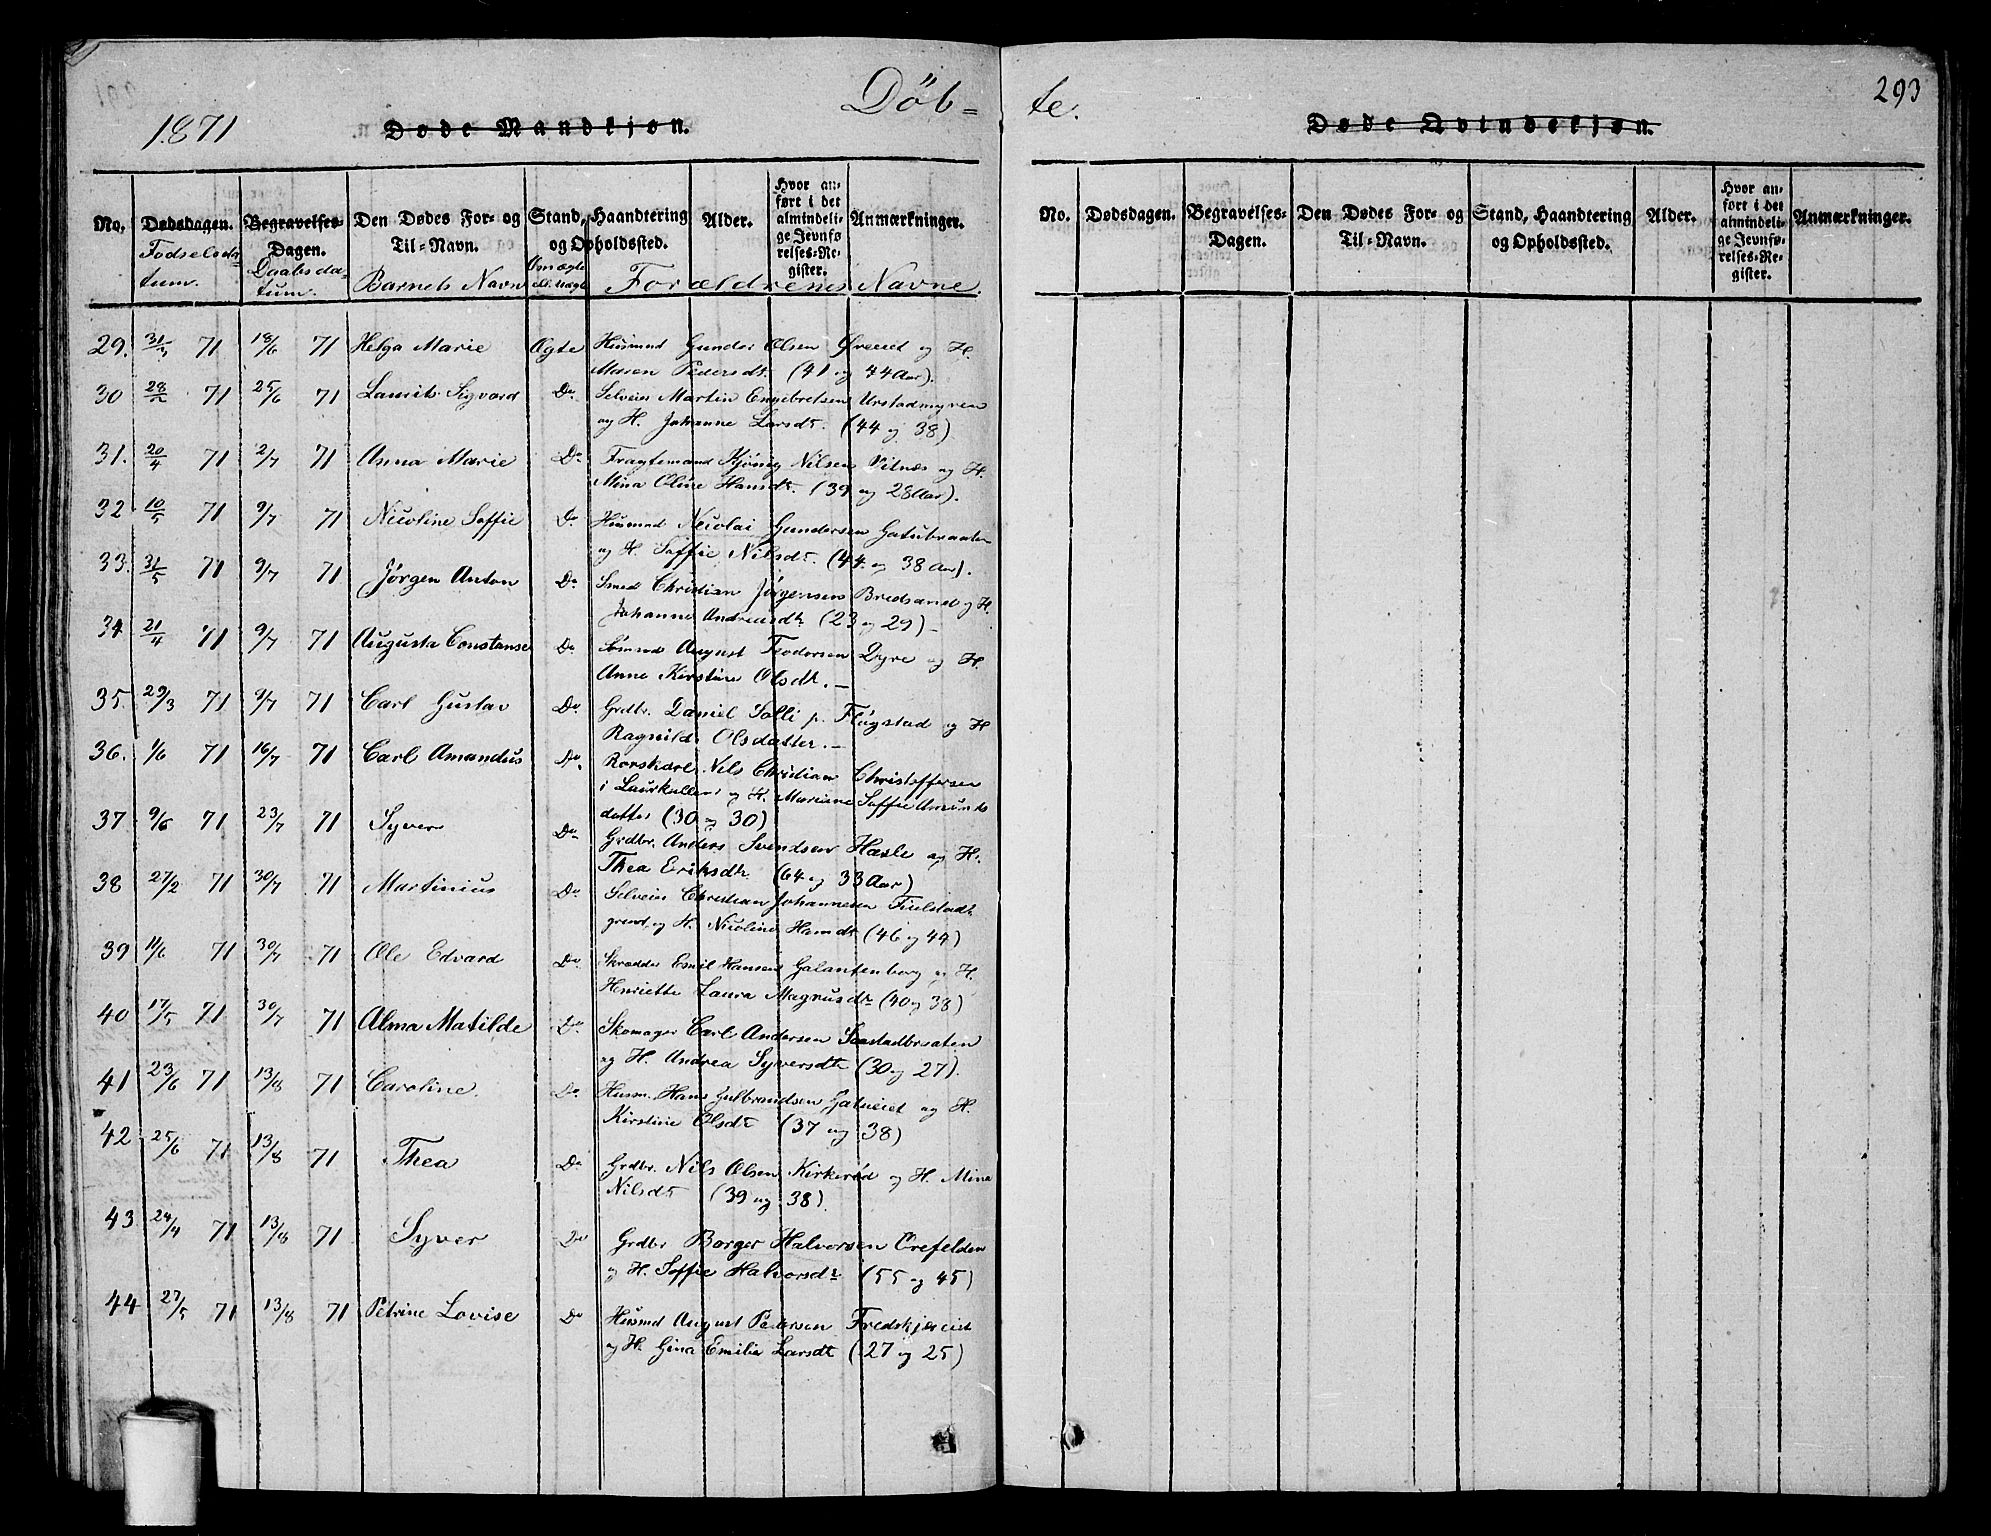 Döb=
te.
293
1871
Døde Mandkjøn.
Døde Qvindekjøn.
No. Dødsdagen. Begravelses-Dagen. Den Dødes For- og Til-Navn. Stand, Haandtering og Opholdssted. Alder. Hvor anført i det almindelige Jevnførelses-Register. Anmærkninger.
Fødselsdatum. Daabsdatum. Barnets Navn Om ægte ell. uægte Forældrenes Navne.
No. Dødsdagen. Begravelses-Dagen. Den Dødes For- og Til-Navn. Stand, Haandtering og Opholdssted. Alder. Hvor anført i det almindelige Jevnførelses-Register. Anmærkninger.
29. 71 18/6 71 Helga Marie Ægte Husmnd Gunder Olsen og H.
Maren Pedersdt. (41 og 44 Aar).
30 71 25/6 71 Laurits Sigvard Do Selveier Martin Engebretsen Urstadmyren
og H. Johanne Larsdt. (44 og 38)
31. 20/4 71 2/7 71 Anna Marie Do Fragtemand Nilsen Vitnæs og H.
Mina Oline Hansdt. (39 og 28 Aar).
32 10/5 71 9/7 71 Nicoline Soffie Do Husmnd Nicolai Gundersen Gatubraaten
og H. Soffie Nilsdt. (44 og 38 Aar).
33. 31/5 71 9/7 71 Jörgen Anton Do Smed Christian Jörgensen Bredsand og H.
Johanne Andreasdt (23 og 29) -
34 21/4 71 9/7 71 Augusta Constanse Do August Dyre og H.
Anne Kirstine Olsdt. -
35. 29/3 71 9/7 71 Carl Gustav Do Grdbr. Daniel Solli p. Flugstad og H
Ragnild Olsdatter. -
36. 1/6 71 16/7 71 Carl Amandus Do Rorskarl Nils Christian Christoffersen
i Laurkullen og H. Mariane Soffie Amunds
datter (30 og 30)
37 9/6 71 23/7 71 Syver Do Grdbr. Anders Svendsen Hasle og H.
Thea Eriksdt. (64 og 33 Aar)
38 27/2 71 30/7 71 Martinius Do Selveier Christian Johannesen
grund, og H. Nicoline Hansdt (46 og 44)
39 11/6 71 30/7 71 Ole Edvard Do Skrædder Emil Hansen Galantenborg og H.
Henriette Laura Magnusdt (40 og 38)
40 17/5 71 30/7 71 Alma Matilde Do Skomager Carl Andersen
og H. Andrea Syversdt (30 og 27).
41 23/6 71 13/8 71 Caroline. Do Husm. Hans Gulbrandsen Gatueiet og H.
Kirstine Olsdt (37 og 38)
42 25/6 71 13/8 71 Thea Do Grdbr. Nils Olsen Kirkeröd og H. Mina
Nilsdt (39 og 38)
43 24/4 71 13/8 71 Syver Do Grdbr Borger Halvorsen Örefelden
og H. Soffie Halvorsdt (55 og 45)
44 27/5 71 13/8 71 Petrine Lovise Do Husmnd August Pedersen
og H. Gina Emilie Larsdt (27 og 25)